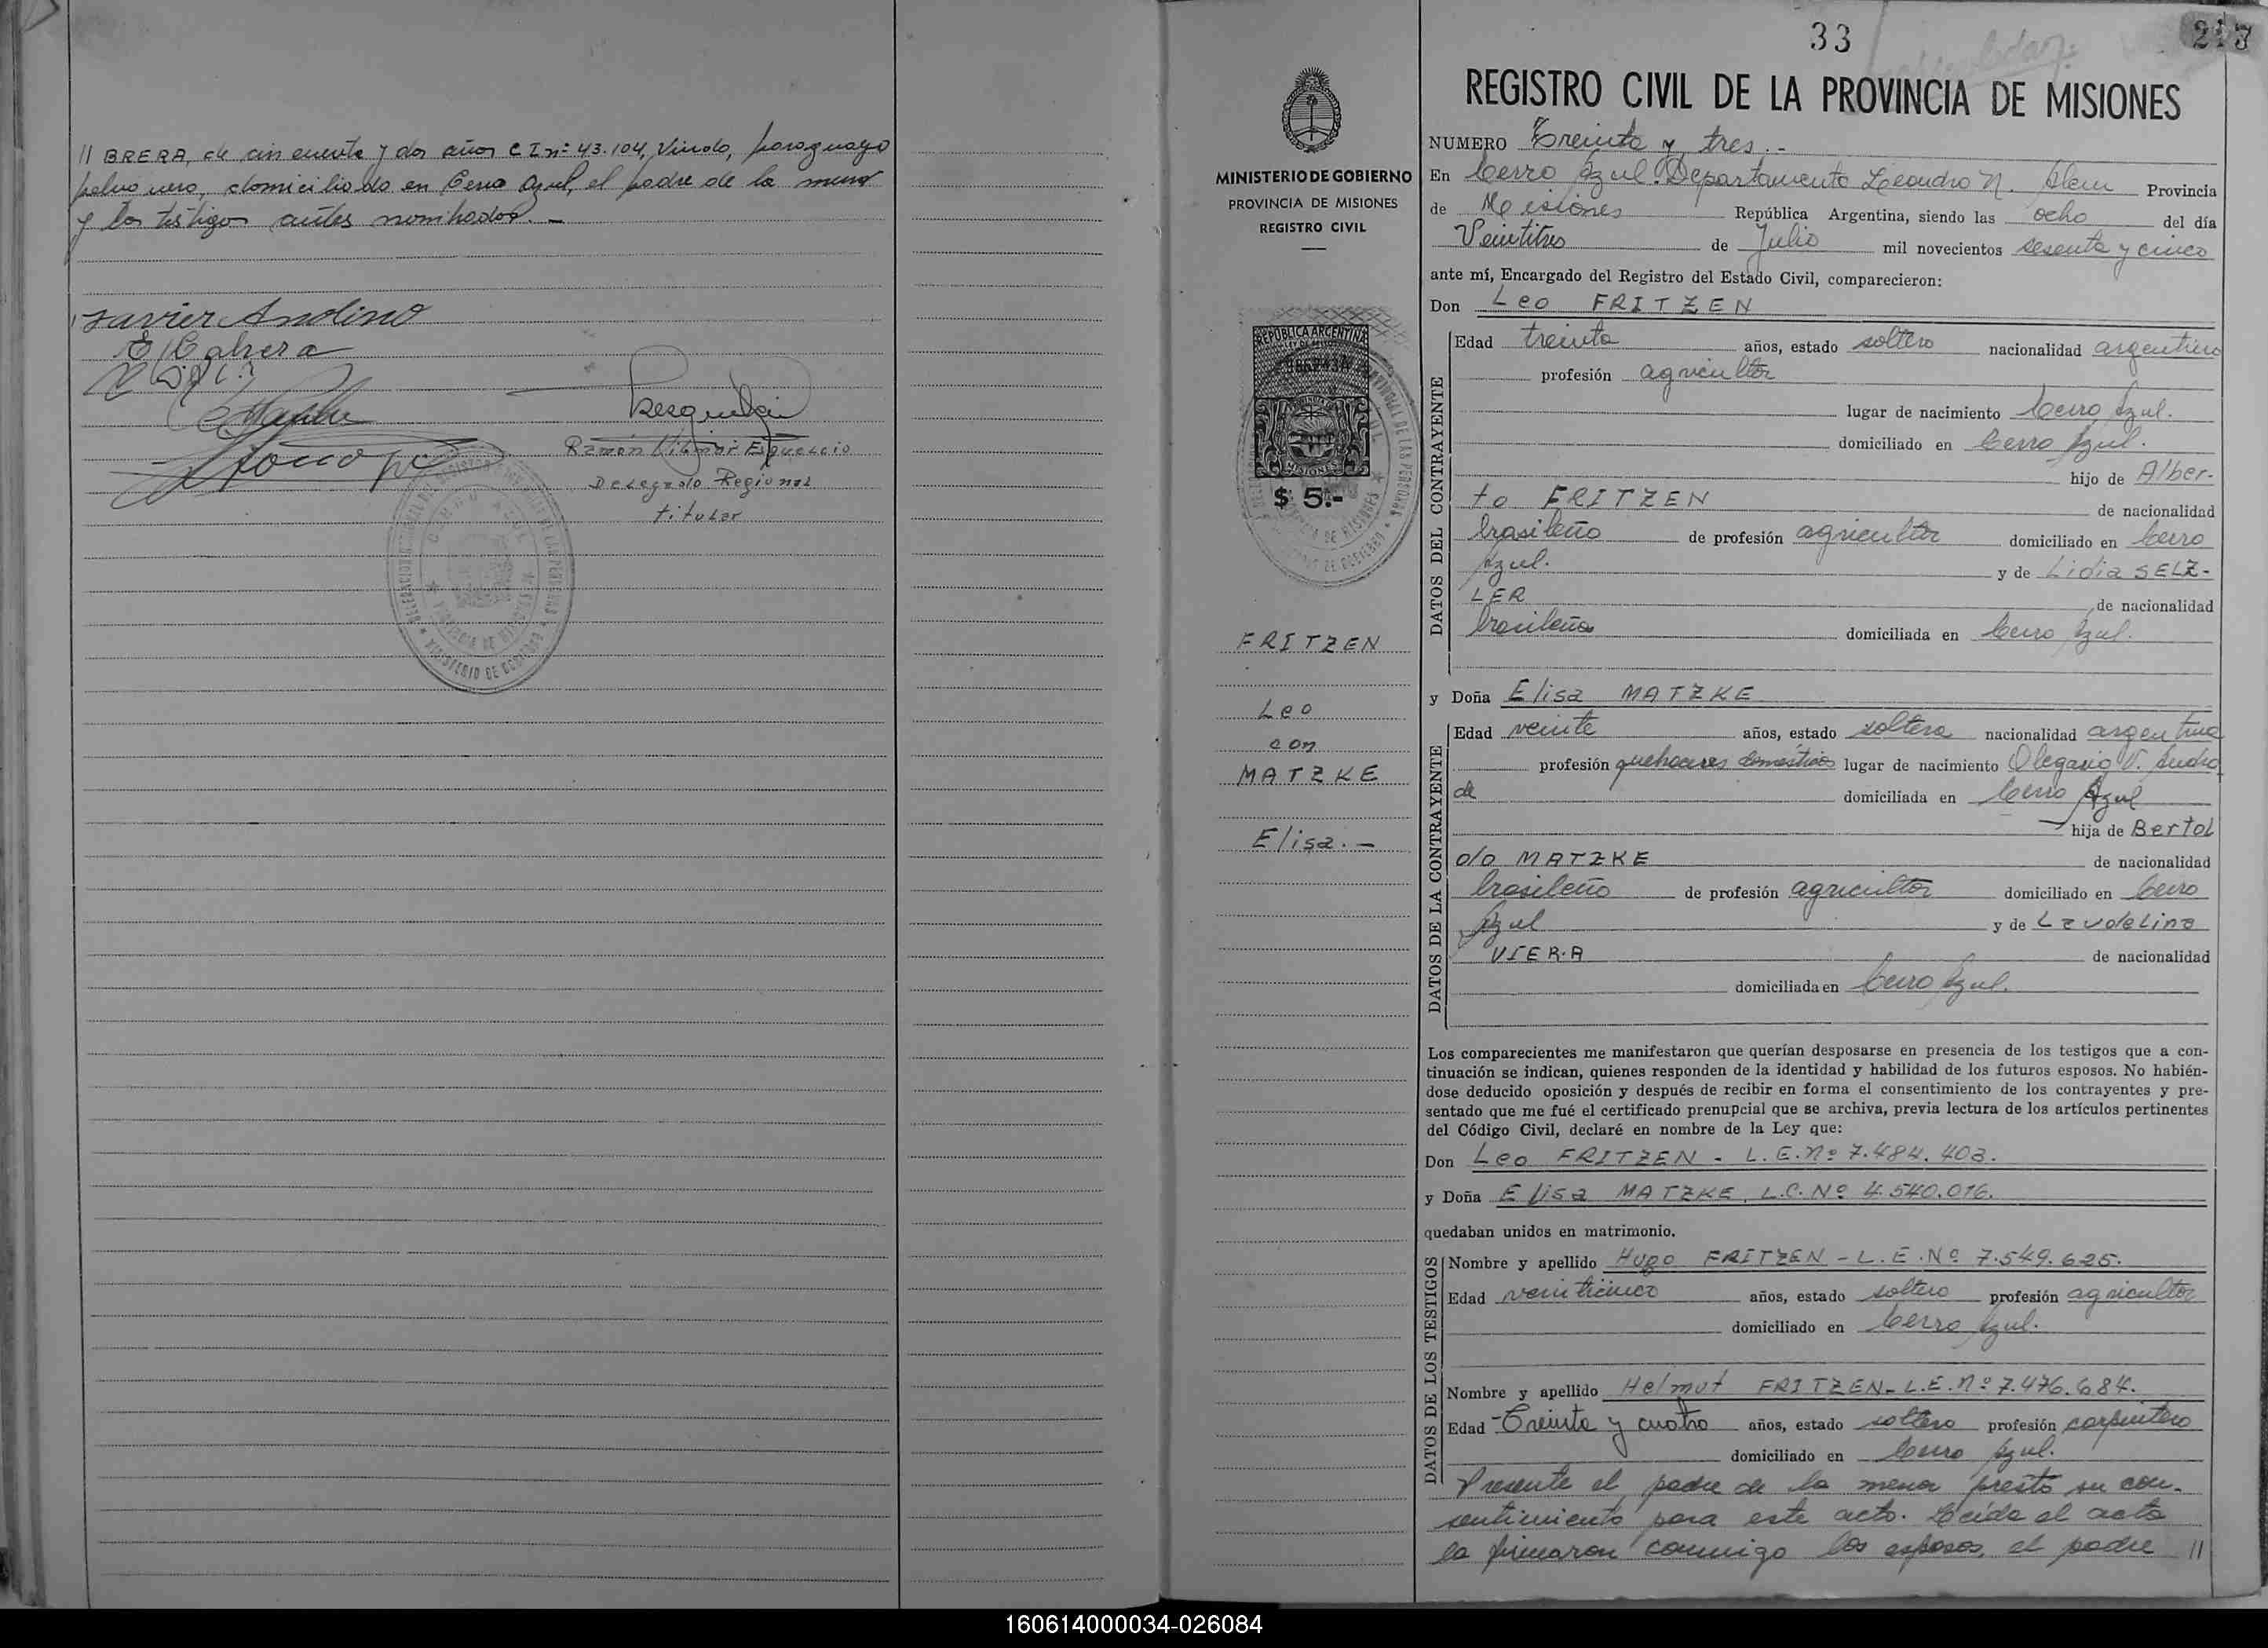 // BRERA, de cincuenta y dos años C I nº 43.104, Viudo, paraguayo
domiciliado en Cerro Azul, el padre de la menor
y los testigos antes nombrados. -
Javier Anolino
E Cabrera
Ramón Vilmar Esquercio
Delegado Regional
titular
33
217
REGISTRO CIVIL DE LA PROVINCIA DE MISIONES
MINISTERIO DE GOBIERNO
PROVINCIA DE MISIONES
REGISTRO CIVIL
REPUBLICA ARGENTINA
MISIONES
$ 5.-
FRITZEN
Leo
con
MATZKE
Elisa. -
NUMERO Treinta y tres. -
En Cerro Azul. Departamento Leandro N. Alem Provincia
de Misiones República Argentina, siendo las ocho del día
Veintitres de Julio mil novecientos sesenta y cinco
ante mí, Encargado del Registro del Estado Civil, comparecieron:
Don Leo FRITZEN
DATOS DEL CONTRAYENTE
Edad treinta años, estado soltero nacionalidad argentino
profesión agricultor
lugar de nacimiento Cerro Azul.
domiciliado en Cerro Azul.
hijo de Alber-
to FRITZEN de nacionalidad
brasileño de profesión agricultor domiciliado en Cerro
Azul. y de Lidia SELZ-
LER de nacionalidad
brasileña domiciliada en Cerro Azul.
y Doña Elisa MATZKE
DATOS DE LA CONTRAYENTE
Edad veinte años, estado soltera nacionalidad argentina
profesión quehaceres domésticos lugar de nacimiento Olegario V. Andra
de domiciliada en Cerro Azul
hija de Bertol
do MATZKE de nacionalidad
brasileño de profesión agricultor domiciliado en Cerro
Azul y de Laudelina
VIERA de nacionalidad
domiciliada en Cerro Azul.
Los comparecientes me manifestaron que querían desposarse en presencia de los testigos que a con-
tinuación se indican, quienes responden de la identidad y habilidad de los futuros esposos. No habién-
dose deducido oposición y después de recibir en forma el consentimiento de los contrayentes y pre-
sentado que me fué el certificado prenupcial que se archiva, previa lectura de los artículos pertinentes
del Código Civil, declaré en nombre de la Ley que:
Don Leo FRITZEN - L.E.Nº 7.484.403.
y Doña Elisa MATZKE, L.C.Nº 4.540.016.
quedaban unidos en matrimonio.
DATOS DE LOS TESTIGOS
Nombre y apellido Hugo FRITZEN - L.E.Nº 7.549.625.
Edad veinticinco años, estado soltero profesión agricultor
domiciliado en Cerro Azul.
Nombre y apellido Helmut FRITZEN - L.E.Nº 7.476.684.
Edad Treinta y cuatro años, estado soltero profesión carpintero
domiciliado en Cerro Azul.
Presente el padre de la menor prestó su con-
sentimiento para este acto. Leída el acta
la firmaron conmigo los esposos, el padre //
160614000034-026084